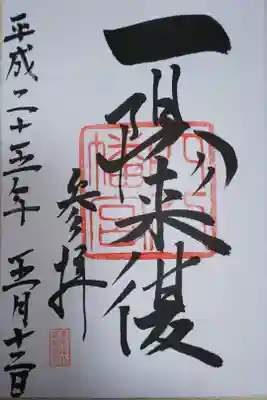 一陽来復
参拝
平成二十五年 正月十二日